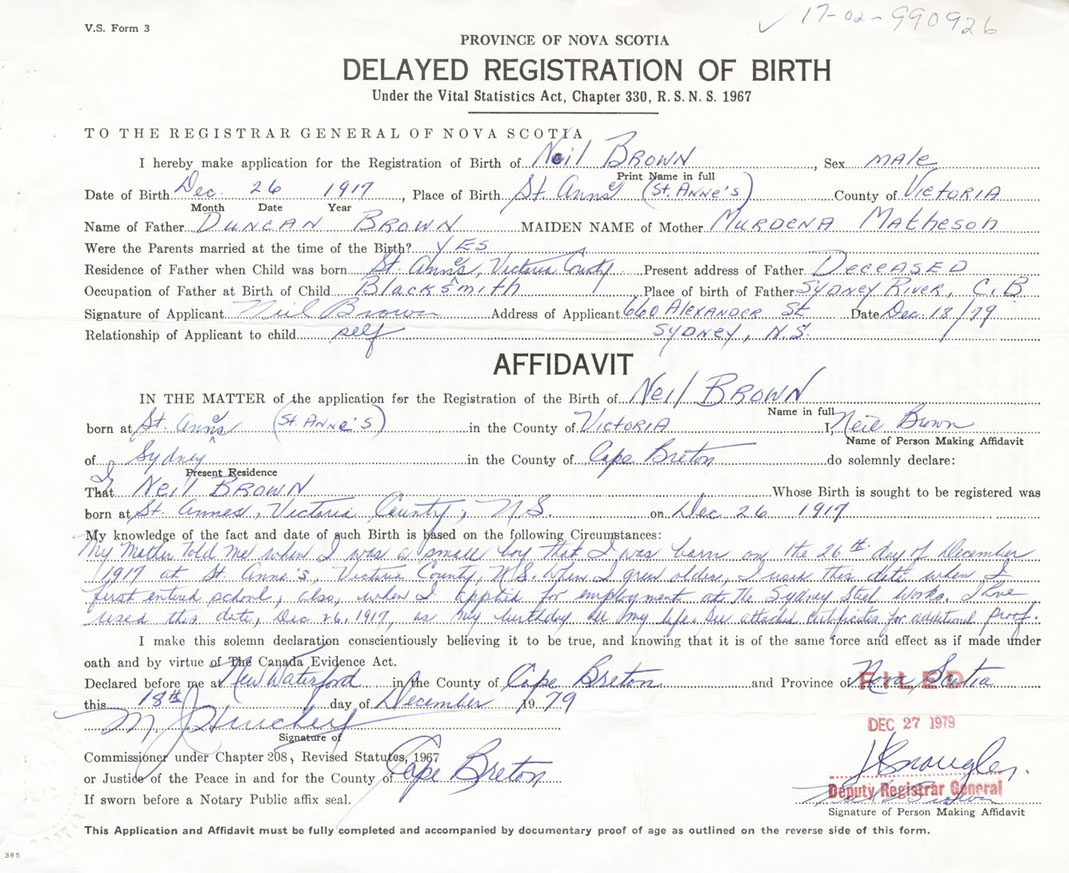 V.S. Form 3
✓ 17-02-990926
PROVINCE OF NOVA SCOTIA
DELAYED REGISTRATION OF BIRTH
Under the Vital Statistics Act, Chapter 330, R. S. N. S. 1967
TO THE REGISTRAR GENERAL OF NOVA SCOTIA
I hereby make application for the Registration of Birth of Neil BROWN, Sex MALE
Print Name in full
Date of Birth Dec. 26 1917, Place of Birth St. Anne (St. ANNE'S) County of VICTORIA
Month Date Year
Name of Father DUNCAN BROWN MAIDEN NAME of Mother MURDENA MATHESON
Were the Parents married at the time of the Birth? YES
Residence of Father when Child was born St. Anne's, Victoria County Present address of Father DECEASED
Occupation of Father at Birth of Child Blacksmith, Place of birth of Father SYDNEY RIVER, C.B.
Signature of Applicant Neil Brown Address of Applicant 660 ALEXANDER St Date Dec 18/79
Relationship of Applicant to child self SYDNEY, N.S.
AFFIDAVIT
IN THE MATTER of the application for the Registration of the Birth of Neil BROWN
Name in full
born at St. Anne's (St. ANNE'S) in the County of VICTORIA I, Neil Brown
Name of Person Making Affidavit
of Sydney in the County of Cape Breton do solemnly declare:
Present Residence
That I NEIL BROWN Whose Birth is sought to be registered was
born at St. Annes, Victoria County, N.S. on Dec 26 1917
My knowledge of the fact and date of such Birth is based on the following Circumstances:
My Mother told me when I was a small boy that I was born on the 26th day of December
1917 at St. Anne's, Victoria County, N.S. When I grew older, I used this date when I
first entered school, also, when I applied for employment at the Sydney Steel Works. I've
used this date, Dec 26, 1917, as my birthday all my life. See attached certificates for additional proof.
I make this solemn declaration conscientiously believing it to be true, and knowing that it is of the same force and effect as if made under
oath and by virtue of The Canada Evidence Act.
Declared before me at New Waterford in the County of Cape Breton and Province of Nova Scotia
FILED
this 18th day of December 19 79
DEC 27 1979
Signature of
Commissioner under Chapter 208, Revised Statutes, 1967
or Justice of the Peace in and for the County of Cape Breton
Deputy Registrar General
If sworn before a Notary Public affix seal.
Signature of Person Making Affidavit
This Application and Affidavit must be fully completed and accompanied by documentary proof of age as outlined on the reverse side of this form.
385